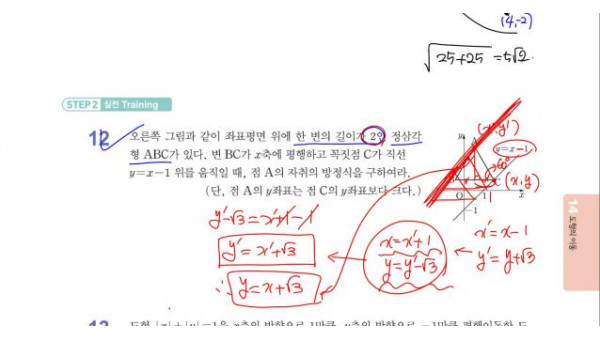 (4,-2)
√25+25 = 5√2
STEP 2 실전 Training
12 오른쪽 그림과 같이 좌표평면 위에 한 변의 길이가 2인 정삼각
형 ABC가 있다. 변 BC가 x축에 평행하고 꼭짓점 C가 직선
y=x-1 위를 움직일 때, 점 A의 자취의 방정식을 구하여라.
(단, 점 A의 y좌표는 점 C의 y좌표보다 크다.)
(x',y')
y=x-1
60°
(x,y)
O 1 x
-1
y'-√3=x'+1-1
y'=x'+√3
∴ y=x+√3
x=x'+1
y=y'-√3
x'=x-1
y'=y+√3
14 도형의 이동
13 도형 |x|+|y|=1을 x축의 방향으로 1만큼, y축의 방향으로 -1만큼 평행이동한 도